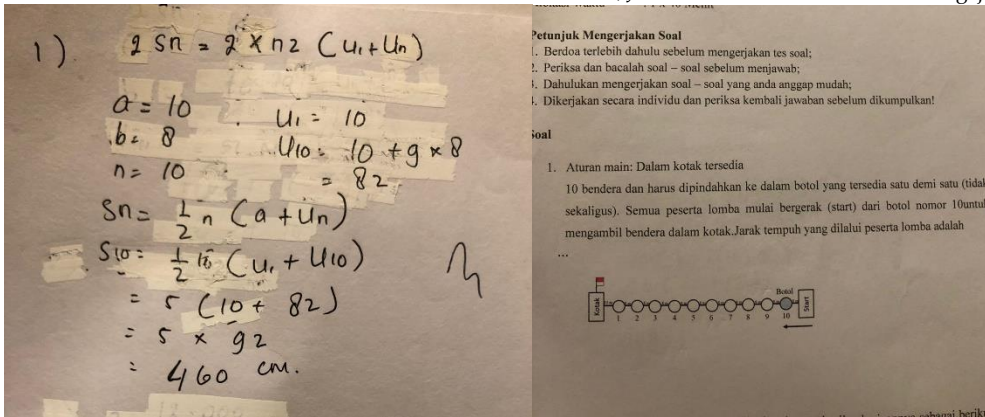 1) 2 Sn = 2 x n2 (U1 + Un)
a = 10 U1 = 10
b = 8 U10 = 10 + 9 x 8
n = 10 = 82
Sn = 1/2 n (a + Un)
S10 = 1/2 10 (U1 + U10)
= 5 (10 + 82)
= 5 x 92
= 460 cm.
Petunjuk Mengerjakan Soal
1. Berdoa terlebih dahulu sebelum mengerjakan tes soal;
2. Periksa dan bacalah soal – soal sebelum menjawab;
3. Dahulukan mengerjakan soal – soal yang anda anggap mudah;
4. Dikerjakan secara individu dan periksa kembali jawaban sebelum dikumpulkan!
Soal
1. Aturan main: Dalam kotak tersedia
10 bendera dan harus dipindahkan ke dalam botol yang tersedia satu demi satu (tidak
sekaligus). Semua peserta lomba mulai bergerak (start) dari botol nomor 10untuk
mengambil bendera dalam kotak.Jarak tempuh yang dilalui peserta lomba adalah
...
Botol
Kotak
Start
1 2 3 4 5 6 7 8 9 10